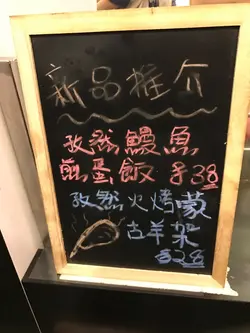 新品推介
孜然鰻魚
煎蛋飯 $38
孜然火烤蒙
古羊架
$28